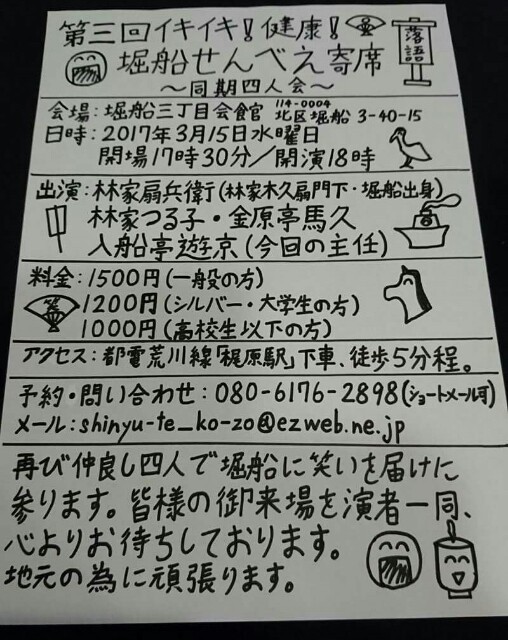 第三回イキイキ!健康!
落語
堀船せんべえ寄席
~同期四人会~
会場:堀船三丁目会館 114-0004 北区堀船 3-40-15
日時:2017年3月15日水曜日
開場17時30分/開演18時
出演:林家扇兵衛(林家木久扇門下・堀船出身)
林家つる子・金原亭馬久
入船亭遊京(今回の主任)
料金:1500円(一般の方)
1200円(シルバー・大学生の方)
1000円(高校生以下の方)
アクセス:都電荒川線「梶原駅」下車、徒歩5分程。
予約・問い合わせ:080-6176-2898(ショートメール可)
メール:shinyu-te_ko-zo@ezweb.ne.jp
再び仲良し四人で堀船に笑いを届けに
参ります。皆様の御来場を演者一同、
心よりお待ちしております。
地元の為に頑張ります。